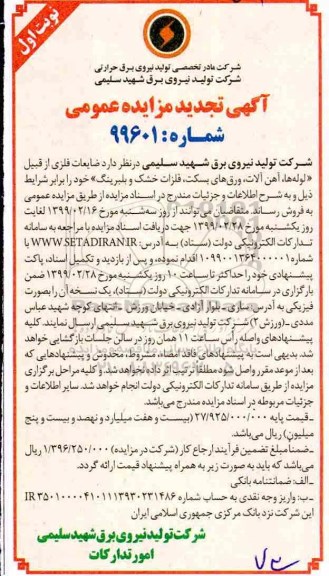 نوبت اول
شرکت مادر تخصصی تولید نیروی برق حرارتی
شرکت تولید نیروی برق شهید سلیمی
آگهی تجدید مزایده عمومی
شماره: ۹۹۶۰۱
شرکت تولید نیروی برق شهید سلیمی درنظر دارد ضایعات فلزی از قبیل
«لوله‌ها، آهن آلات، ورق‌های بسکت، فلزات خشک و بلبرینگ» خود را برابر شرایط
ذیل و به شرح اطلاعات و جزئیات مندرج در اسناد مزایده از طریق مزایده عمومی
به فروش رساند. متقاضیان می‌توانند از روز سه‌شنبه مورخ ۱۳۹۹/۰۲/۱۶ لغایت
روز یکشنبه مورخ ۱۳۹۹/۰۲/۲۸ جهت دریافت اسناد مزایده با مراجعه به سامانه
تدارکات الکترونیکی دولت (ستاد) به آدرس: WWW.SETADIRAN.IR با
شماره ۱۰۹۹۰۰۱۳۶۴۰۰۰۰۰۱ اقدام نموده، و پس از بازدید و تکمیل اسناد، پاکت
پیشنهادی خود را حداکثر تا ساعت ۱۰ روز یکشنبه مورخ ۱۳۹۹/۰۲/۲۸ ضمن
بارگزاری در سامانه تدارکات الکترونیکی دولت (ستاد)، یک نسخه آن را بصورت
فیزیکی به آدرس: ساری ـ بلوار آزادی ـ خیابان ورزش ـ انتهای کوچه شهید عباس
مددی ـ (ورزش ۲) شرکت تولید نیروی برق شهید سلیمی ارسال نمایند. کلیه
پیشنهادهای واصله رأس ساعت ۱۱ همان روز در سالن جلسات بازگشایی خواهد
شد. بدیهی است به پیشنهادهای فاقد امضاء، مشروط، مخدوش و پیشنهادهایی که
بعد از موعد مقرر واصل شود مطلقاً ترتیب اثر داده نخواهد شد. و کلیه مراحل برگزاری
مزایده از طریق سامانه تدارکات الکترونیکی دولت انجام خواهد شد. سایر اطلاعات و
جزئیات مربوطه در اسناد مزایده مندرج می‌باشد.
ـ قیمت پایه ۲۷/۹۲۵/۰۰۰/۰۰۰ (بیست و هفت میلیارد و نهصد و بیست و پنج
میلیون) ریال می‌باشد.
ـ ضمنا مبلغ تضمین فرآیند ارجاع کار (شرکت در مزایده) ۱/۳۹۶/۲۵۰/۰۰۰ ریال
می‌باشد که باید به صورت زیر به همراه پیشنهاد قیمت ارائه گردد.
ـ الف: ضمانتنامه بانکی
ـ ب: واریز وجه نقدی به حساب شماره IR ۳۵۰۱۰۰۰۰۴۱۰۱۱۱۳۹۳۰۲۳۱۴۸۶
این شرکت نزد بانک مرکزی جمهوری اسلامی ایران
شرکت تولید نیروی برق شهید سلیمی
امور تدارکات